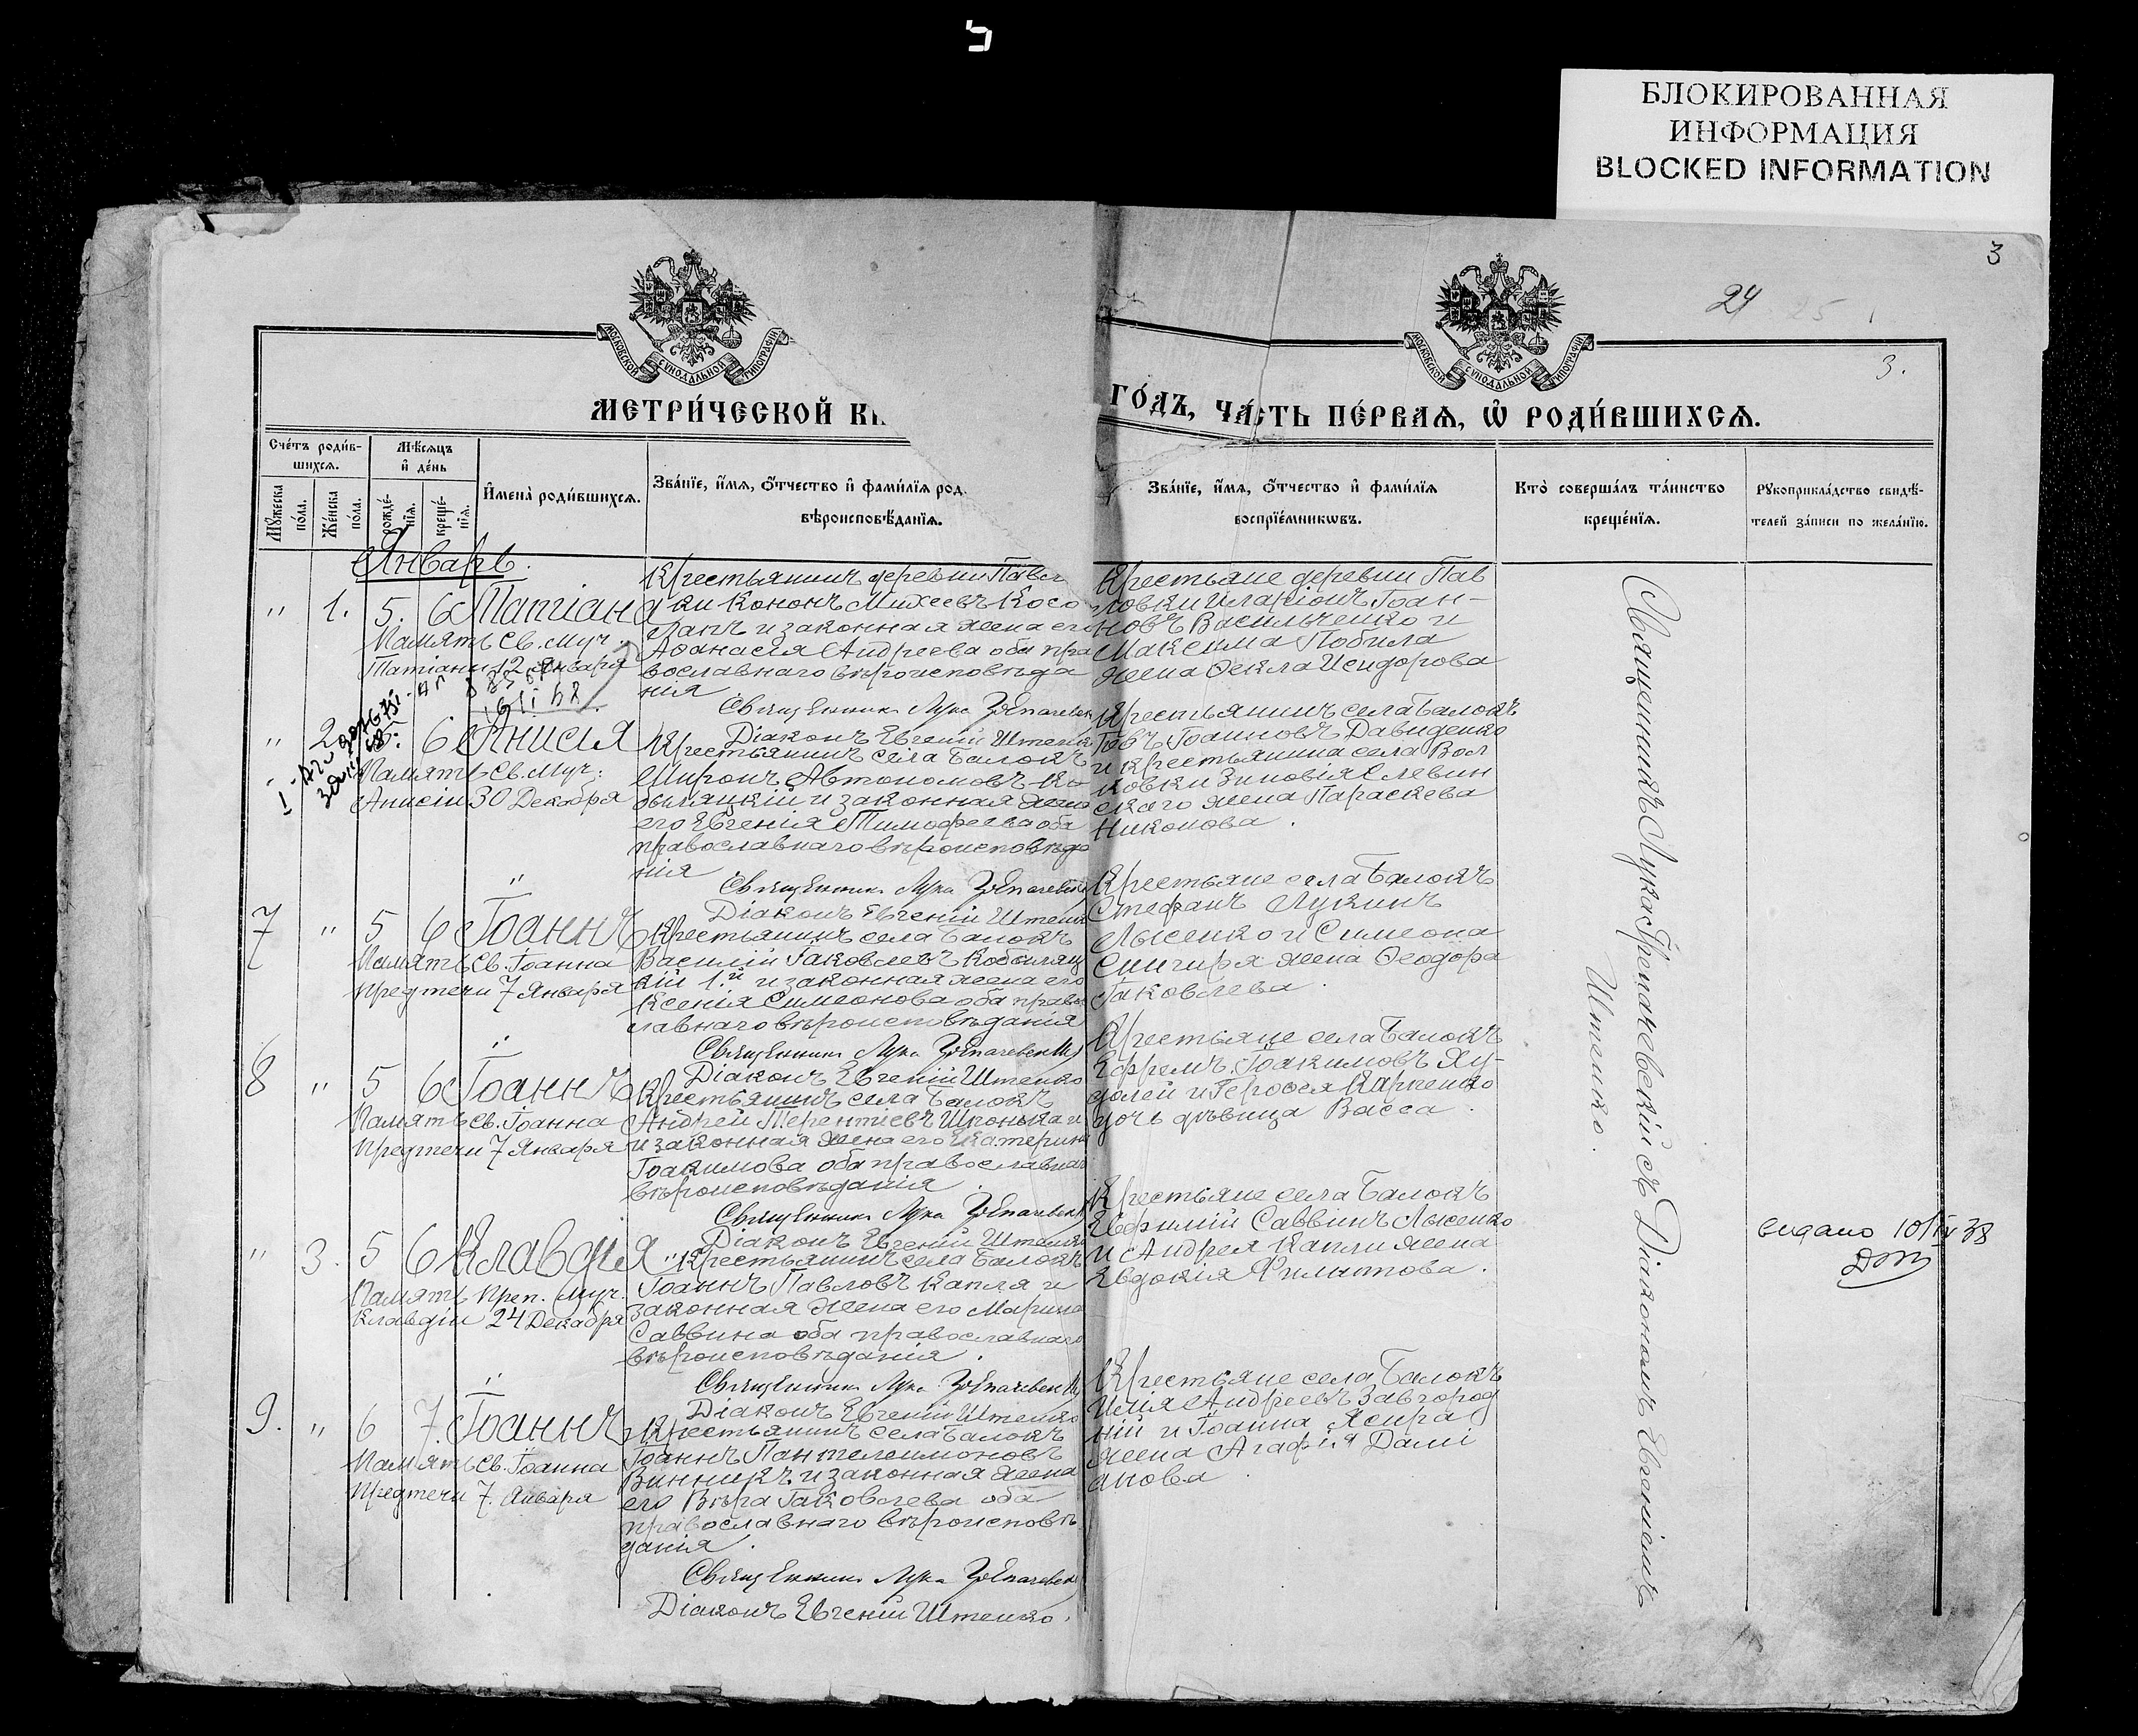 БЛОКИРОВАННАЯ
ИНФОРМАЦИЯ
BLOCKED INFORMATION
3
24 25
3.
МОСКОВСКОЙ СѴНОДАЛЬНОЙ ТИПОГРАФІИ
МОСКОВСКОЙ СѴНОДАЛЬНОЙ ТИПОГРАФІИ
МЕТРИ́ЧЕСКОЙ КН
ГО́ДЪ, ЧА́СТЬ ПЕ́РВАѦ, Ѡ҆ РОДИ́ВШИХСѦ.
Сче́тъ роди́в-
шихсѧ.
Мѣ́сѧцъ
и҆ де́нь
Мꙋ́жеска
по́ла.
Же́нска
по́ла.
рожде́-
нїѧ.
креще́-
нїѧ.
И҆мена̀ роди́вшихсѧ.
Зва́нїе, и҆́мѧ, ѻ҆́тчество и҆ фами́лїѧ род
вѣроисповѣ́данїѧ.
Зва́нїе, и҆́мѧ, ѻ҆́тчество и҆ фами́лїѧ
воспрїе́мникѡвъ.
Кто̀ соверша́лъ та́инство
креще́нїѧ.
Рꙋкоприкла́дство свидѣ́-
телей за́писи по жела́нїю.
Январь.
" 1. 5. 6 Татіана
Память Св. Муч.
Татіаны 12 Января
Крестьянинъ деревни Павл
ки Кононъ Михеевъ Косо
лапъ и законная жена его
Аѳанасія Андреева оба пра
вославнаго вѣроисповѣда
нія
Священникъ Лука
Діаконъ Евгеній Штепко
Крестьяне деревни Пав
ловки Иларіонъ Іоан-
новъ Васильченко и
Максима Побила
жена Ѳекла Исидорова
" 2 6 Анисія
Память Св. Муч:
Анисіи 30 Декабря
Крестьянинъ села Балокъ
Миронъ Автономовъ Ко
быляцкій и законная жена
его Евгенія Тимофеева оба
православнаго вѣроисповѣда
нія
Священникъ Лука
Діаконъ Евгеній Штепко
Крестьянинъ села Балокъ
Іоанновъ Давиденко
и крестьянина села Вол
ковки Зиновія Слевин
скаго жена Параскева
Никонова.
7 " 5 6 Іоаннъ
Память Св. Іоанна
Предтечи 7 Января
Крестьянинъ села Балокъ
Василій Іаковлевъ Кобыляц
кій 1.й и законная жена его
Ксенія Симеонова оба право
славнаго вѣроисповѣданія
Священникъ Лука
Діаконъ Евгеній Штепко
Крестьяне села Балокъ
Стефанъ Лукинъ
Лысенко и Симеона
Снигиря жена Ѳеодора
Іаковлева.
8 " 5 6 Іоаннъ
Память Св. Іоанна
Предтечи 7 Января
Крестьянинъ села Балокъ
Андрей Терентіевъ Шпонька и
и законная жена его Екатерина
Іоакимова оба православнаго
вѣроисповѣданія.
Священникъ Лука
Діаконъ Евгеній Штепко
Крестьяне села Балокъ
Ефремъ Іоакимовъ Ху-
долей и Іероѳея Карпенко
дочь дѣвица Васса.
" 3. 5 6 Клавдія
Память Преп. Муч.
Клавдіи 24 Декабря
Крестьянинъ села Балокъ
Іоаннъ Павловъ Капля и
законная жена его Марина
Саввина оба православнаго
вѣроисповѣданія.
Священникъ Лука
Діаконъ Евгеній Штепко
Крестьяне села Балокъ
Евфимій Саввинъ Лысенко
и Андрея Капли жена
Евдокія Филиппова.
9. " 6 7. Іоаннъ
Память Св. Іоанна
Предтечи 7. Января
Крестьянинъ села Балокъ
Іоаннъ Пантелеимоновъ
Винникъ и законная жена
его Вѣра Іаковлева оба
православнаго вѣроисповѣ
данія.
Священникъ Лука
Діаконъ Евгеній Штепко.
Крестьяне села Балокъ
Исаія Андреевъ Завгород
ній и Іоанна
жена Агафія Дамі
анова
Священникъ Лука съ Діакономъ Евгеніемъ
Штепко.
видано 10/IV 38